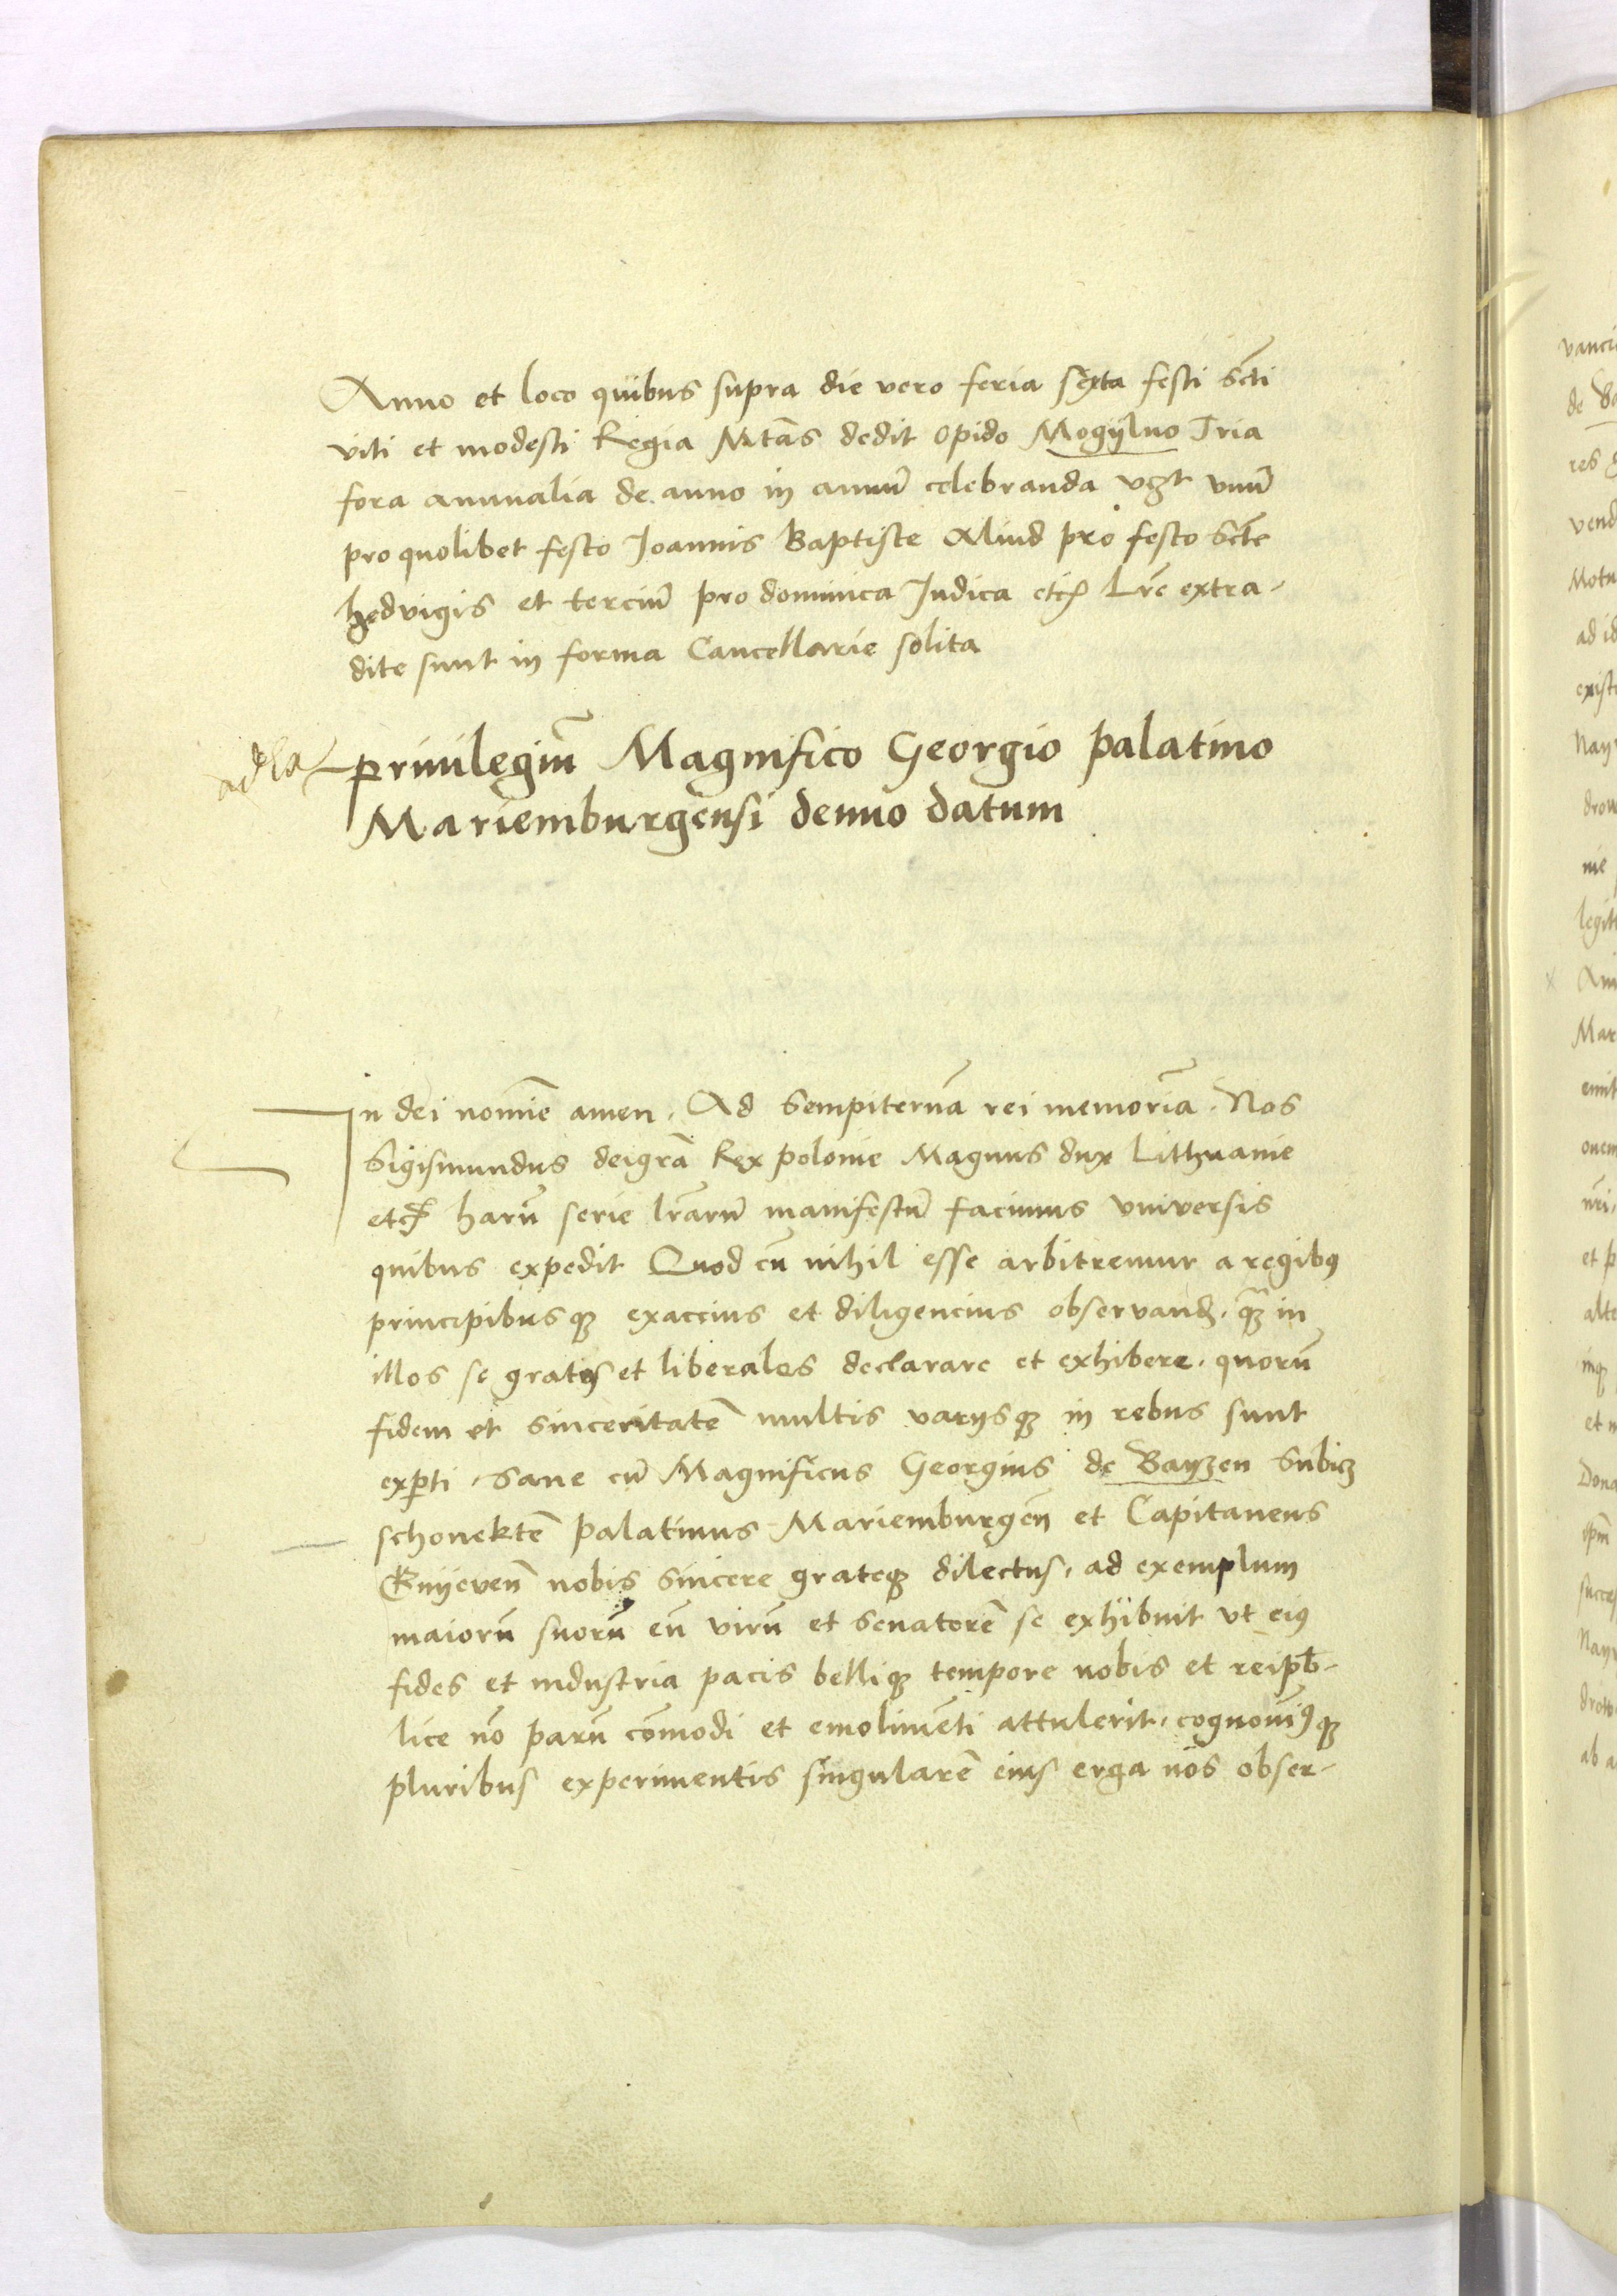 Anno et loco quibus supra die vero feria sexta festi Scti
viti et modesti Regia Mtas dedit opido Mogijlno Tria
fora annualia de anno in annu celebranda vzt unu
pro quolibet festo Joannis Baptiste Aliud pro festo Scte
hedvigis et terciu pro dominica Judica etc Lre extra-
dite sunt in forma Cancellarie solita
privilegiu Magnifico Georgio palatino
Mariemburgensi denuo datum
In dei nomie amen. Ad Sempiterna rei memoria. Nos
Sigismundus deigra Rex polonie Magnus dux Lithuanie
etc haru serie lraru manifestu facimus universis
quibus expedit Quod cu nihil esse arbitremur a regibus
principibusq exaccius et diligencius observand. q in
illos se gratos et liberales declarare et exhibere. quoru
fidem et sinceritate multis varijsq in rebus sunt
experti. Sane cu Magnificus Georgius de Bayzen Subiz
schonekte palatinus Mariemburgen et Capitaneus
Gnijeven nobis sincere grateq dilectus, ad exemplum
maioru suoru eu viru et senatore se exhibuit ut eius
fides et industria pacis belliq tempore nobis et reipb-
lice no paru comodi et emolimeti attulerit, cognovimusq
pluribus experimentis singulare eius erga nos obser-